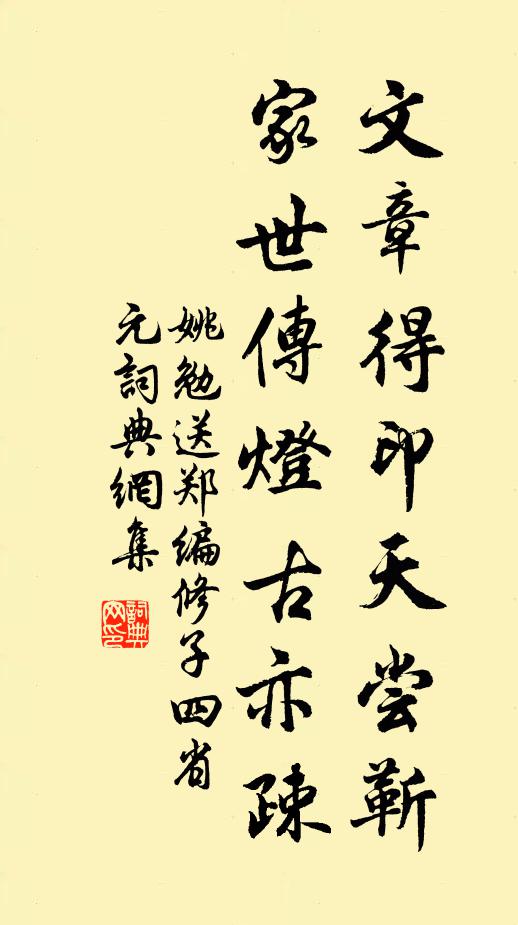 文章得印天尝靳
家世傳燈古亦疎
姚勉送郑编修子四省
元詞典網集
詞典网印